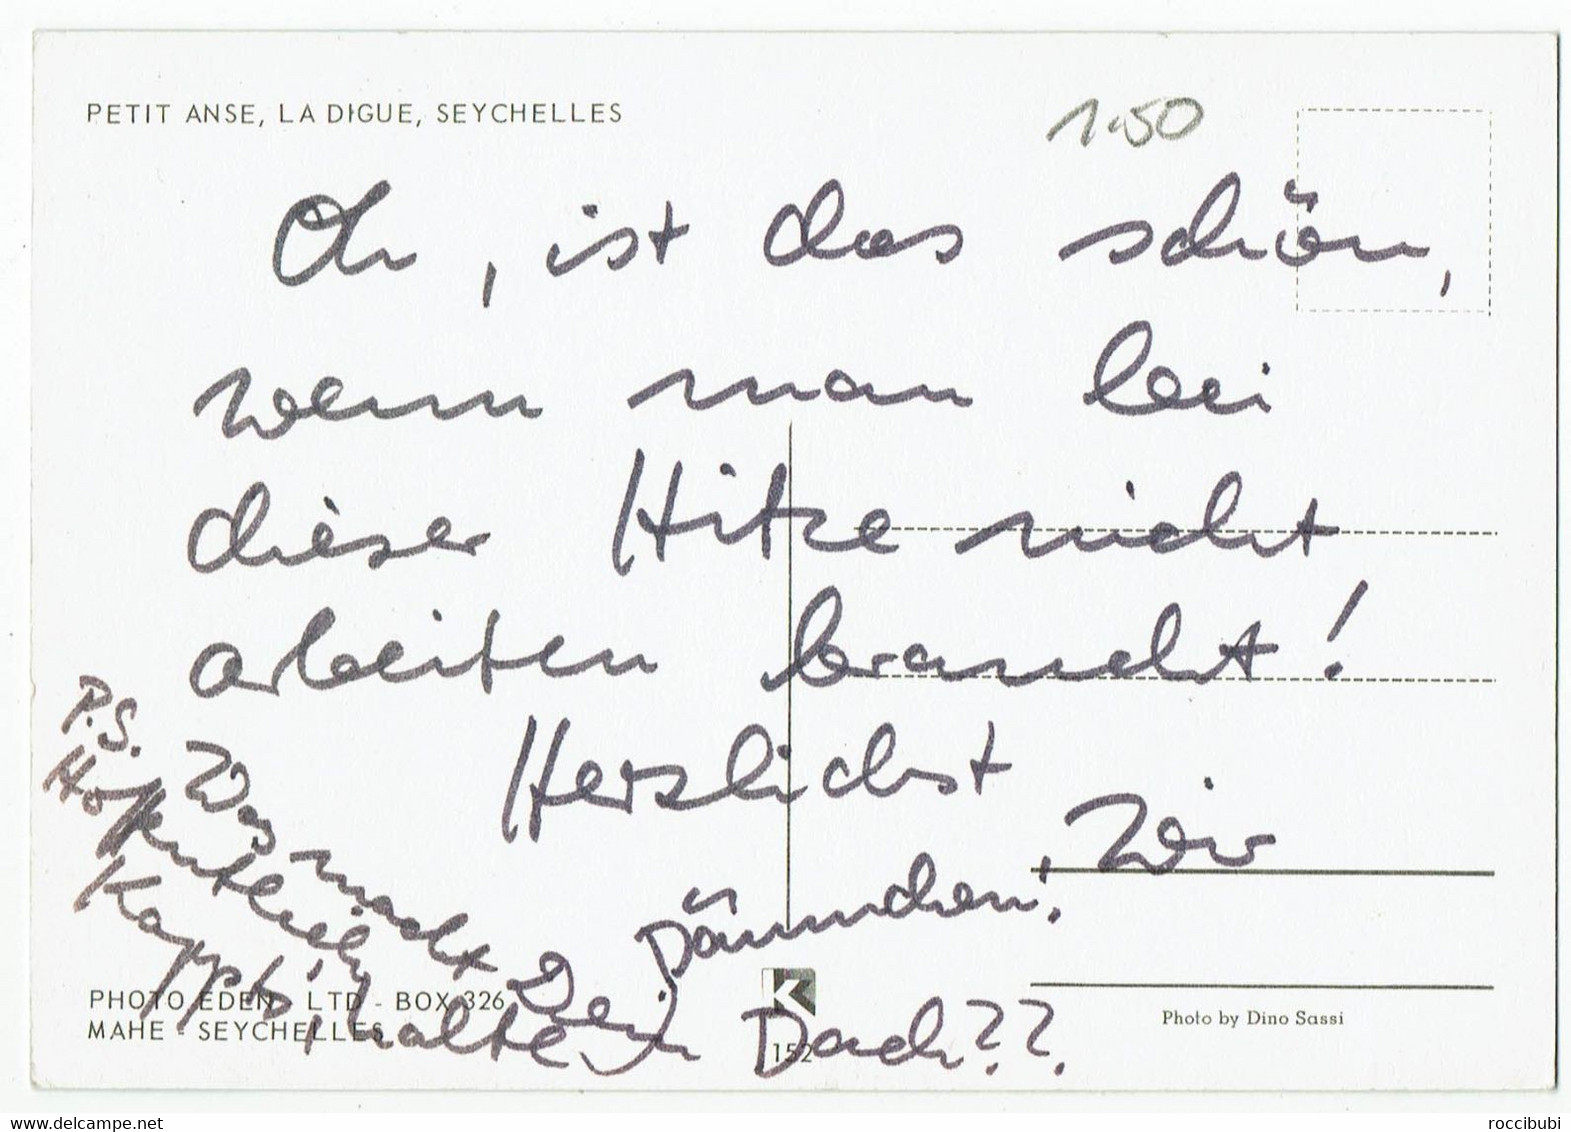 PETIT ANSE, LA DIGUE, SEYCHELLES
1.50
Oh, ist das schön,
wenn man bei
dieser Hitze nicht
arbeiten braucht!
Herzlichst
Wir
P.S. Was macht Dein Dach??
Hoffentlich
Kappt's
halte
Däumchen!
PHOTO EDEN LTD - BOX 326
MAHE - SEYCHELLES
K
152
Photo by Dino Sassi
www.delcampe.net
roccibubi